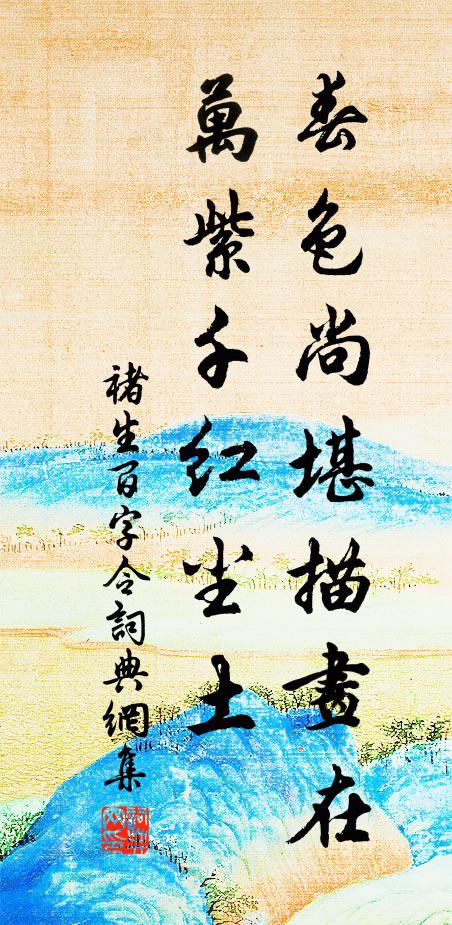 春色尚堪描畫在
萬紫千紅尘土
褚生百字令詞典網集